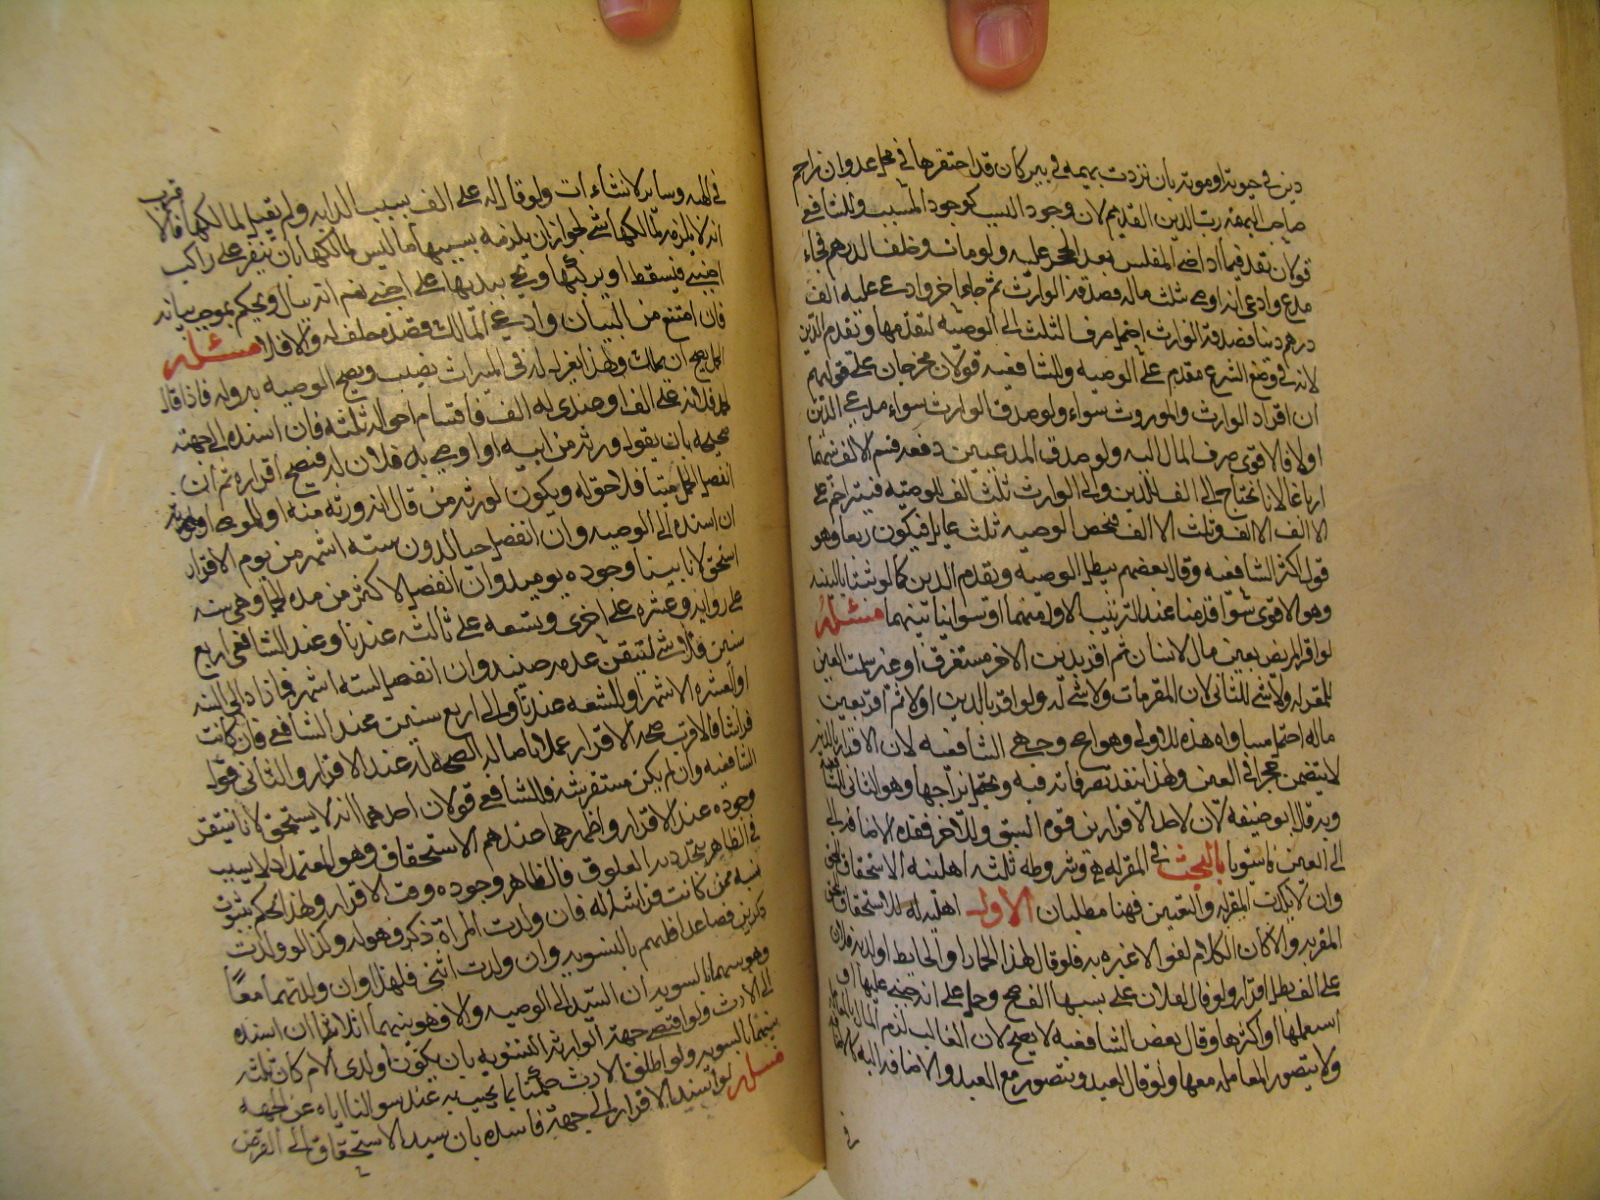 دين في حيوته او موته بان تردت بهيمة في بير كان قد احتفرها في محل عدوان زاحم
صاحب البهيمة رب الدين القديم لان وجود السبب كوجود المسبب وللشافعي
قولان تقدر فيما اذا جني المفلس بعد الحجر عليه ولو مات وخلف الف درهم فجاء
مدع وادعى انه اوصى بثلث ماله فصدقه الوارث ثم جاء اخر وادعى عليه الف
درهم دينا فصدقه الوارث احتمل صرف الثلث الى الوصية لتقدمها وتقدم الدين
لانه في وضع الشرع مقدم على الوصية وللشافعية قولان مخرجان على قولهم
ان اقرار الوارث والموروث سواء ولو صدق الوارث سواء مدعي الدين
اولا فالاقوى صرف المال اليه ولو صدق المدعيين دفعة قسم الالف بينهما
ارباعا لانا نحتاج الى الف للدين والى الوارث ثلث الف للوصية فيتزاحم على
الالف الالف وثلث الالف فيخص الوصية ثلث عايل فيكون ربعا وهو
قول اكثر الشافعية وقال بعضهم يبطل الوصية ويقدم الدين كما لو ثبتا بالبينة
وهو الاقوى سوا قدمنا عند الترتيب الاول منهما او سوينا بينهما مسئلة
لو اقر المريض بعين مال لانسان ثم اقر بدين لاخر مستغرق او غيره سلمت العين
للمقر له ولا شي للثاني لان المقر مات ولا شي له ولو اقر بالدين اولا ثم اقر بعين
ماله احتمل مساواه هذه للاولى وهو اصح وجهي الشافعية لان الاقرار بالدين
لا يتضمن حجرا في العين ولهذا تنفذ تصرفاته فيه ويحتمل تزاحمهما وهو الثاني للشافعية
وبه قال ابو حنيفة لان لاحد الاقرارين قوة السبق وللاخر قوة الاضافة الى
الى العين فاستويا البحث في المقر له وشروطه ثلثة اهلية الاستحقاق
وان لا يكذب المقر له والتعيين فهنا مطلبان الاول اهليته للاستحقاق
المقر به والا كان الكلام لغوا لا عبره به فلو قال لهذا الحمار او الحايط او لدابة فلان
على الف بطل اقراره ولو قال لفلان على بسببها الف صح وحمل على انه جنى عليها او
استعملها او اكتراها وقال بعض الشافعية لا يصح لان الغالب لزوم المال بالمعاملة
ولا يتصور المعاملة معها ولو قال لعبد ويتصور مع العبد والاضافة اليه كالاضافة
في الهبة وساير الانشاءات ولو قال له على الف بسبب الدابة ولم يقل لمالكها فالاقرب
انه لا يلزمه لمالكها شي لجواز ان يلزمه بسببها ما ليس لمالكها بان ينفر على راكب
اجنبي فيسقط او يركبها ويجني بيديها على اجنبي نعم انه يسال ويحكم بموجب بيانه
فان امتنع من البيان وادعى المالك قصده حلف له والا فلا مسئلة
الحمل يصح ان يملك ولهذا يعزل له في الميراث نصيب ويصح الوصية به وله فاذا قال
لحمل فلانة على الف او عندي له الف فاقسام احواله ثلثة فان اسنده الى جهة
صحيحة بان يقول ورثه من ابيه او اوصى به فلان له فيصح اقراره ثم ان
انفصل الحمل ميتا فلا حق له ويكون لورثة من قال انه ورثه منه او للموصى او لورثته
ان اسنده الى الوصية وان انفصل حيا لدون ستة اشهر من يوم الاقرار
استحق لانا تبينا وجوده يوميذ وان انفصل لاكثر من مدة الحمل وهي سنة
على رواية وعشرة على اخرى وتسعة على ثالثة عندنا وعند الشافعي اربع
سنين فلا شي لتيقن عدمه حينئذ وان انفصل لستة اشهر فما زاد الى السنة
او العشرة الاشهر او التسعة عندنا والى اربع سنين عند الشافعي فان كانت
فراشا فالاقرب صحة الاقرار عملا باصالة الصحة له عند الاقرار والثاني قول
الشافعية وان لم يكن مستفرشة فللشافعي قولان احدهما انه لا يستحق لانا لا نتيقن
وجوده عند الاقرار واظهرهما عندهم الاستحقاق وهو المعتمد اذ لا سبب
في الظاهر يتجدد به العلوق فالظاهر وجوده وقت الاقرار ولهذا يحكم بثبوت
نسبه ممن كانت فراشا له فان ولدت المراة ذكرا فهو له وكذا لو ولدت
ذكرين فصاعدا فلهم بالتسوية وان ولدت انثى فلها وان ولدتهما معا
وهو بينهما بالسوية ان اسنده الى الوصية والا فهو بينهما اثلاثا ان اسنده
الى الارث ولو اقتضى جهة الوراثة التسوية بان يكون اولدى الام كان ثلثه
بينهما بالسوية ولو اطلق الارث حكمنا بما يجيب به عند سوالنا اياه عن الجهة
مسئلة لو اسند الاقرار الى جهة فاسدة بان يسند الاستحقاق الى القرض